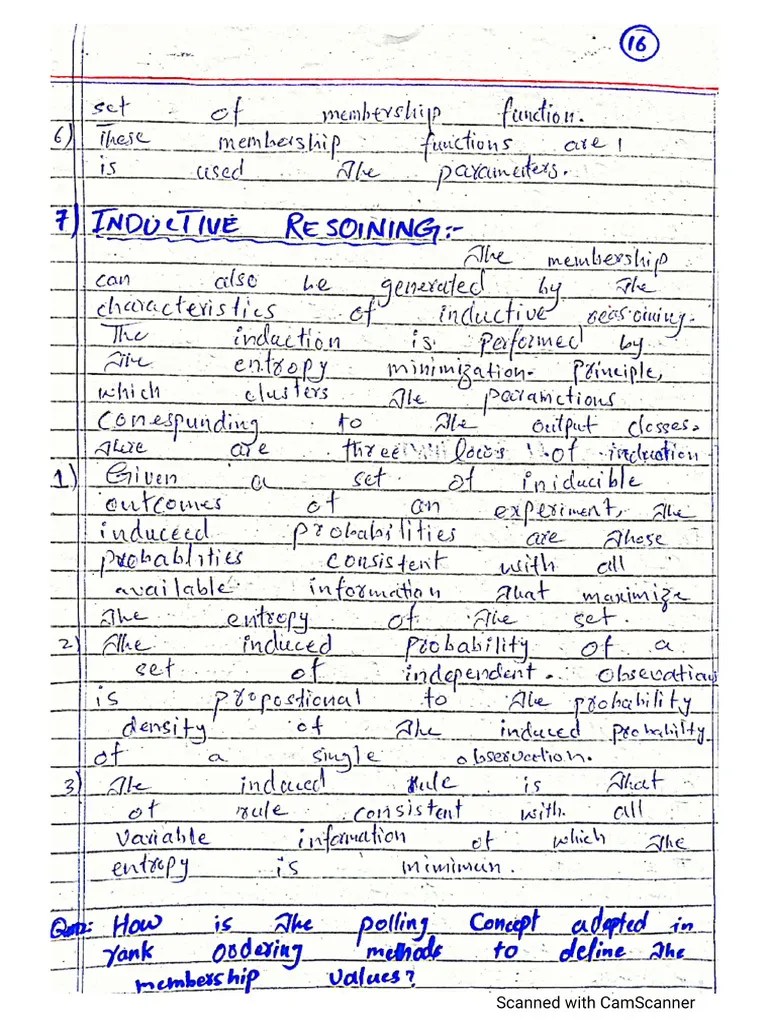 16
set of membership function.
6) These membership functions are
is used the parameters.
7) INDUCTIVE RESOINING:-
The membership
can also be generated by the
characteristics of inductive reasoining.
The induction is performed by
the entropy minimization. principle,
which clusters the paramctions
Conespunding to the output closses.
There are three laws of induction
1) Given a set of iniducible
outcomes of an experiment, the
induceed probabilities are those
probablities consistent with all
available information that maximize
the entropy of the set.
2) The induced probability of a
set of independent. Obsevations
is propostional to the probability
density of the induced probabilty
of a single observation.
3) The induced rule is that
of rule consistent with. all
variable information of which the
entropy is mimimun.
Ques: How is the polling Concept adapted in
rank Ordering methods to define the
membership values?
Scanned with CamScanner